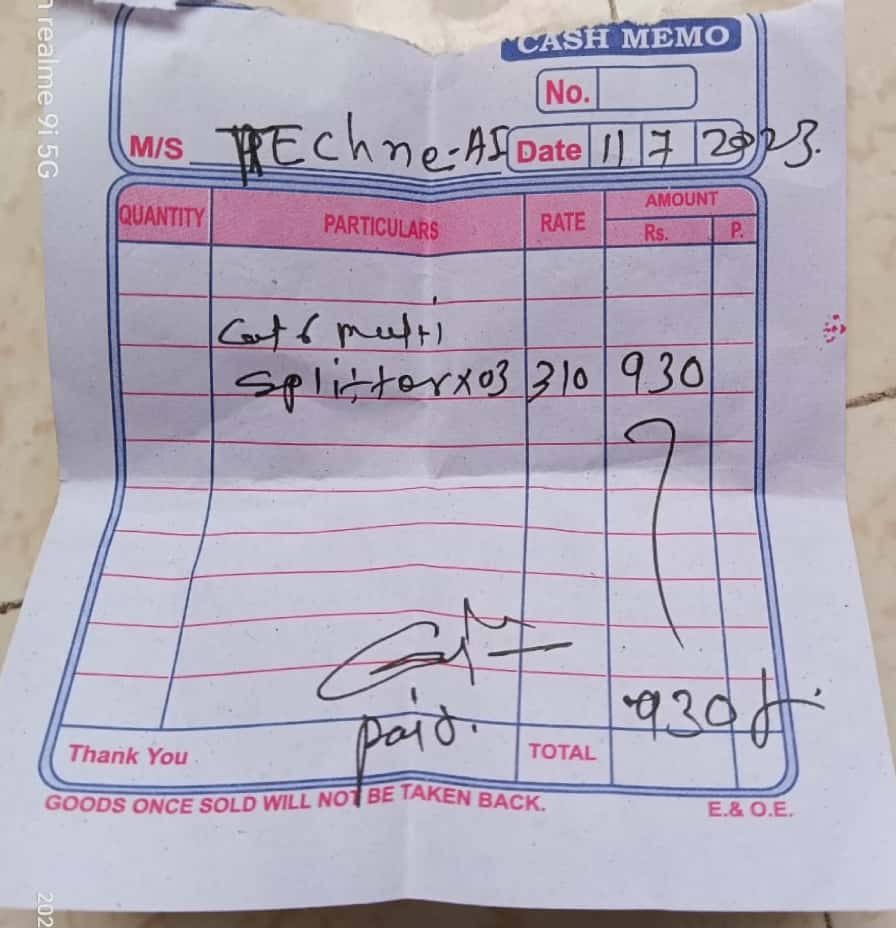 CASH MEMO
No.
M/S TEchne-AI Date 11 7 2023.
QUANTITY PARTICULARS RATE AMOUNT
Rs. P.
Cat 6 multi
Splittor x 03 310 930
paid.
930
Thank You TOTAL
GOODS ONCE SOLD WILL NOT BE TAKEN BACK. E.& O.E.
realme 9i 5G
202